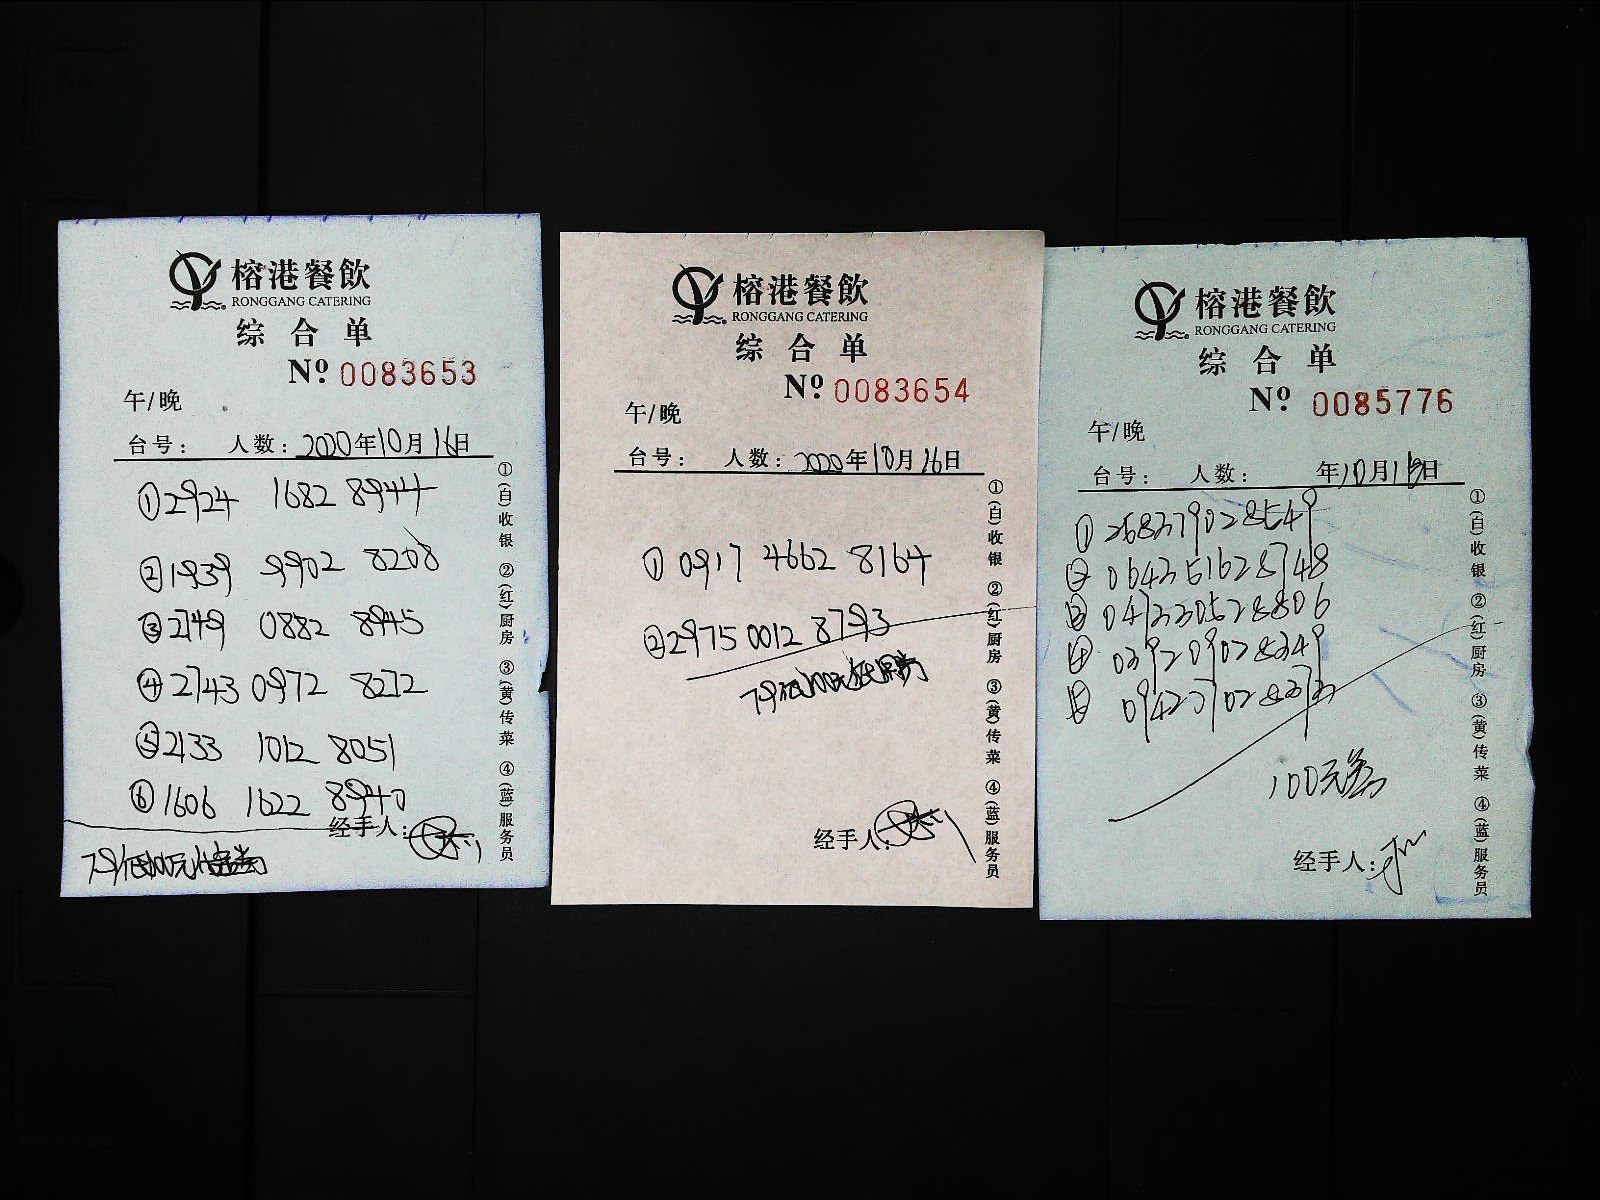 榕港餐飲
RONGGANG CATERING
综合单
Nº 0083653
午/晚
台号： 人数： 2020年10月16日
①2924 1682 8944
②1939 9902 8208
③2149 0882 8945
④2743 0972 8272
⑤2133 1012 8051
⑥1606 1622 8940
经手人：
79抵100元
①(白)收银 ②(红)厨房 ③(黄)传菜 ④(蓝)服务员
榕港餐飲
RONGGANG CATERING
综合单
Nº 0083654
午/晚
台号： 人数： 2020年10月16日
① 0917 4662 8164
②2975 0012 8793
79抵100元抵用券
经手人：
①(白)收银 ②(红)厨房 ③(黄)传菜 ④(蓝)服务员
榕港餐飲
RONGGANG CATERING
综合单
Nº 0085776
午/晚
台号： 人数： 年10月16日
① 268379028549
② 064351628748
③ 047330528806
④ 039209028349
⑤ 094237028373
100元券
经手人：
①(白)收银 ②(红)厨房 ③(黄)传菜 ④(蓝)服务员